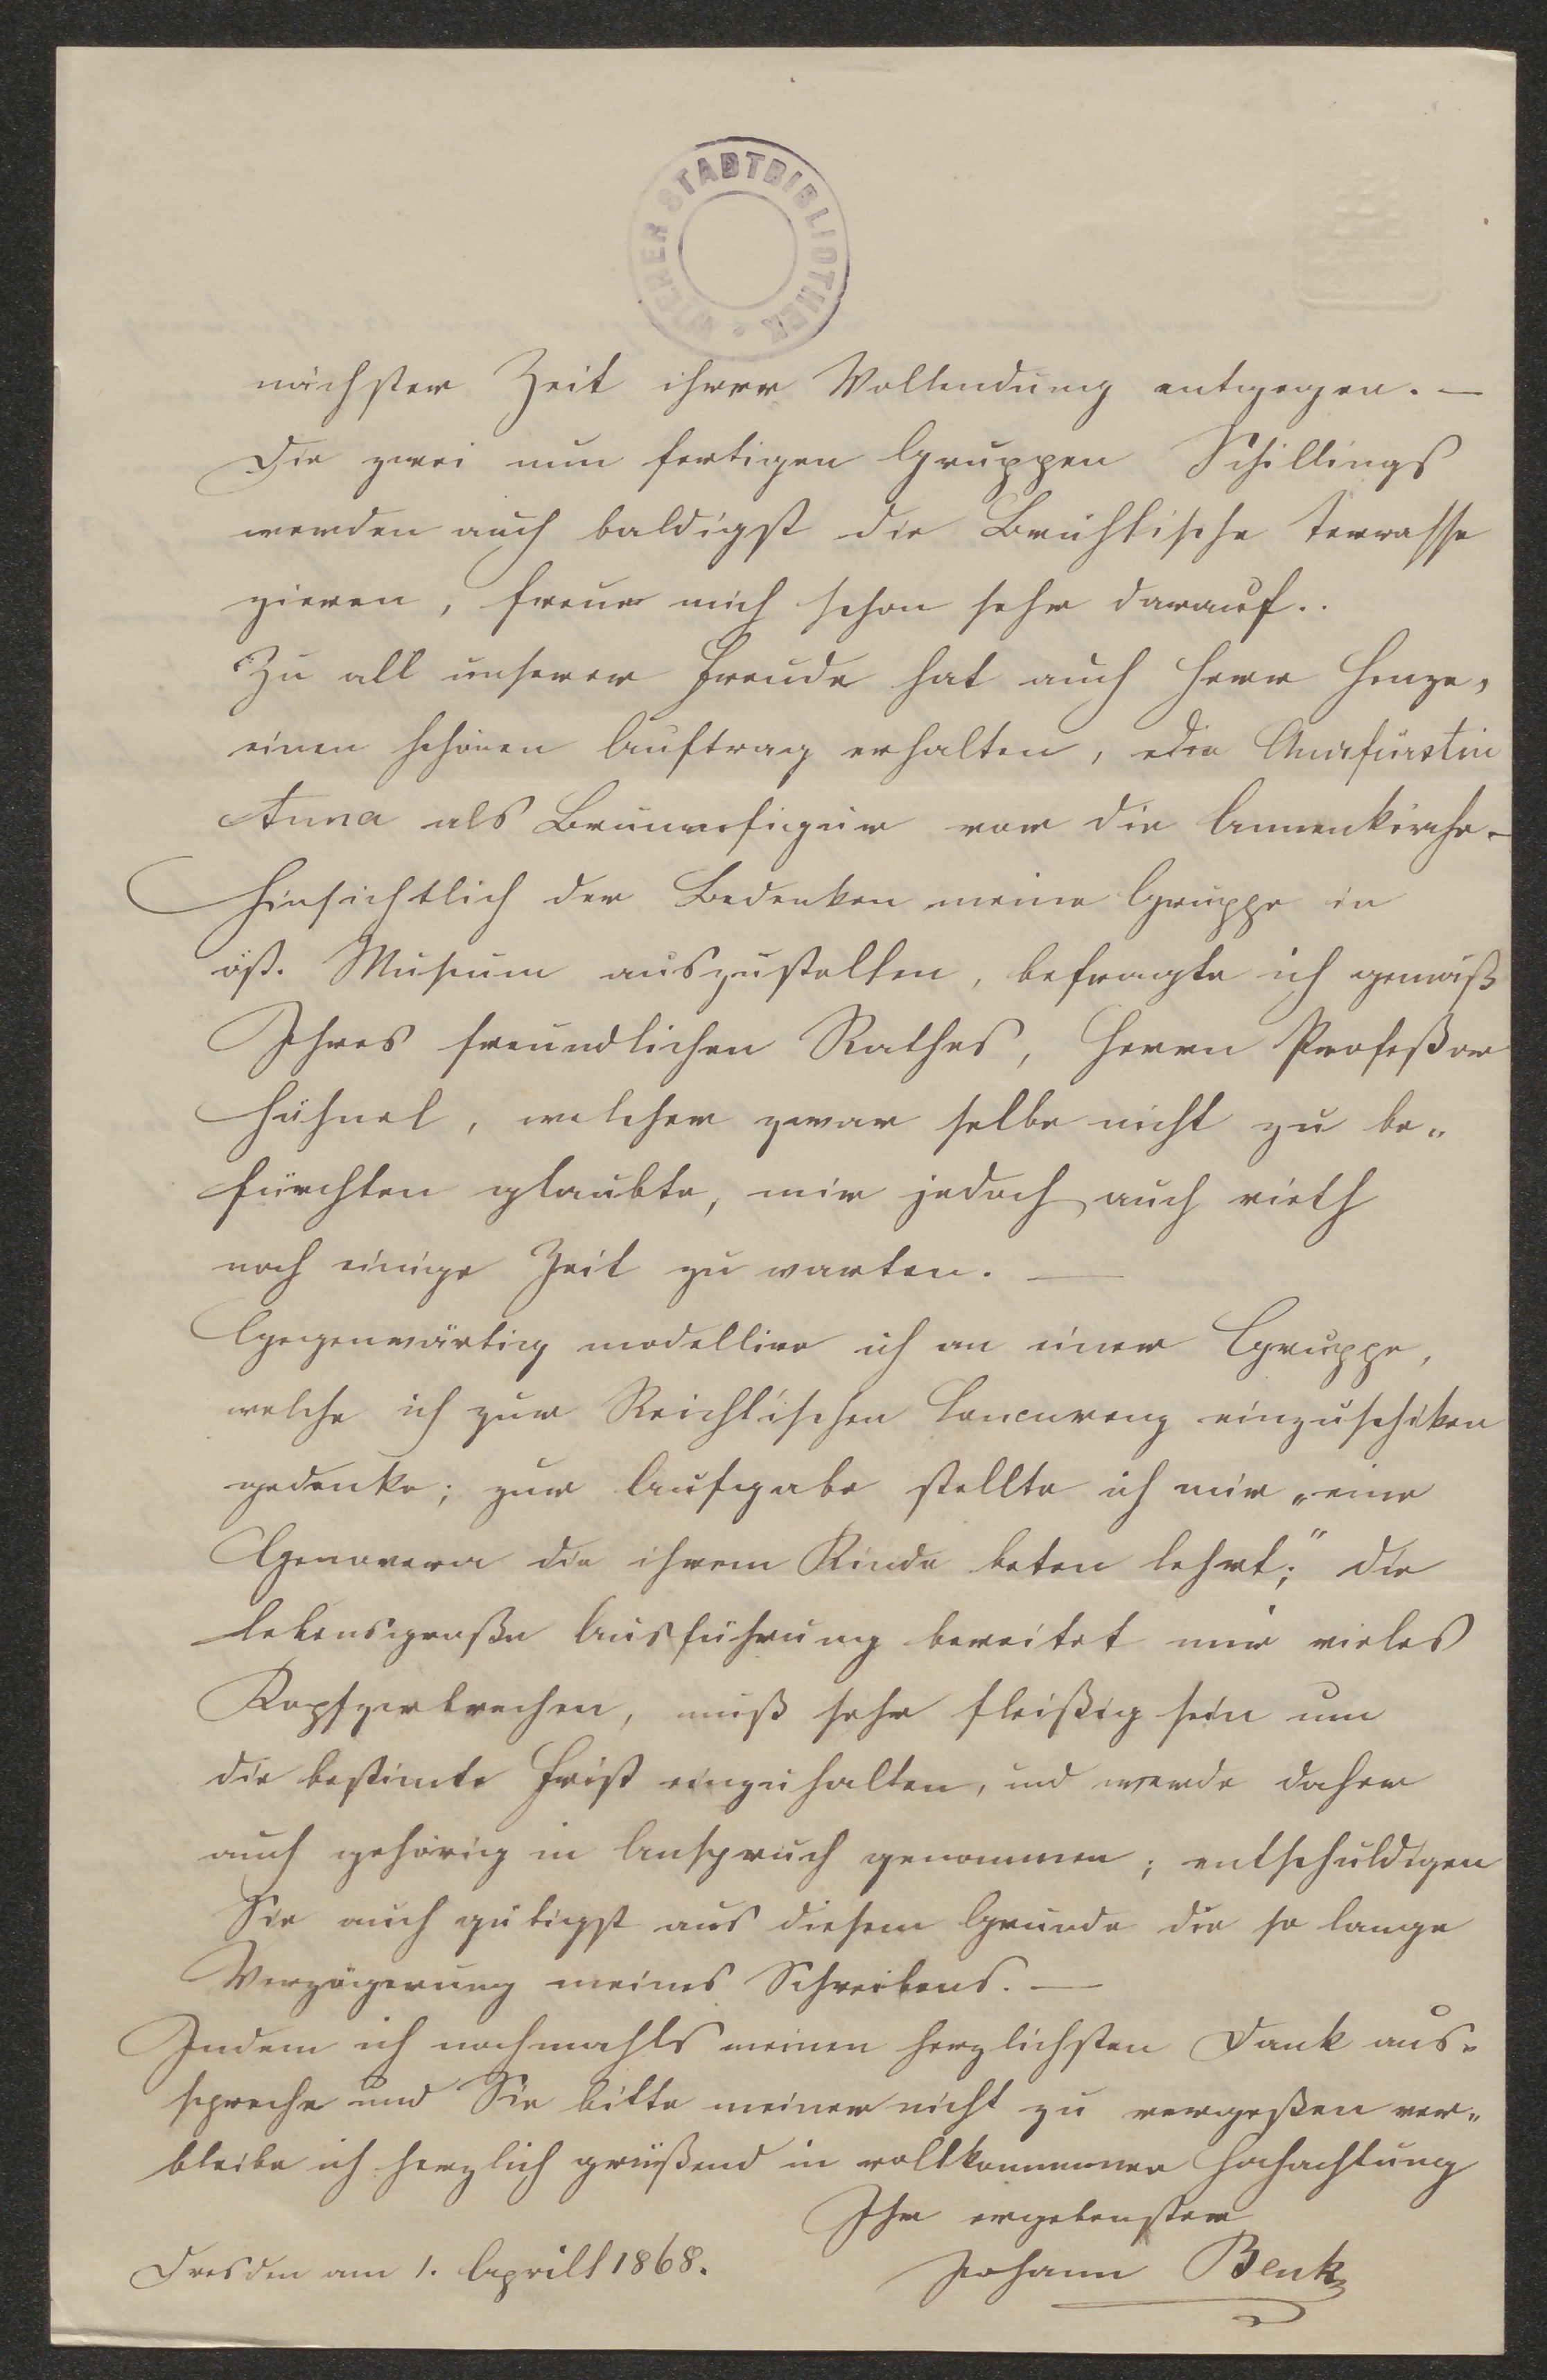 WIENER STADTBIBLIOTHEK
nächster Zeit ihrer Vollendung entgegen. —
Die zwei nun fertigen Gruppen Schillings
werden auch baldigst die Brühlische Terrasse
zieren, freue mich schon sehr darauf..
Zu all unserer Freude hat auch Herr Henze,
einen schönen Auftrag erhalten, die Churfürstin
Anna als Brunnefigur vor die Annenkirche. —
Hinsichtlich der Bedenken meine Gruppe in
öst. Museum auszustellen, befragte ich gemäß
Ihres freundlichen Rathes, Herrn Profeßor
Hähnel, welcher zwar selbe nicht zu be„
fürchten glaubte, mir jedoch auch rieth
noch einige Zeit zu warten. —
Gegenwärtig modellire ich an einer Gruppe,
welche ich zur Reichlischen Concurenz einzuschiken
gedenke; zur Aufgabe stellte ich mir „eine
Genovera die ihrem Kinde beten lehrt;" die
lebensgroße Ausführung bereitet mir vieles
Kopfzerbrechen, muß sehr fleißig sein um
die bestimte Frist einzuhalten, und werde daher
auch gehörig in Anspruch genommen; entschuldigen
Sie auch gütigst aus diesem Grunde die so lange
Verzögerung meines Schreibens. —
Indem ich nochmahls meinen herzlichsten Dank aus„
spreche und Sie bitte meiner nicht zu vergeßen ver„
bleibe ich herzlich grüßend in vollkommener Hochachtung
Ihr ergebenster
Dresden am 1. Aprill 1868.
Johann Benk